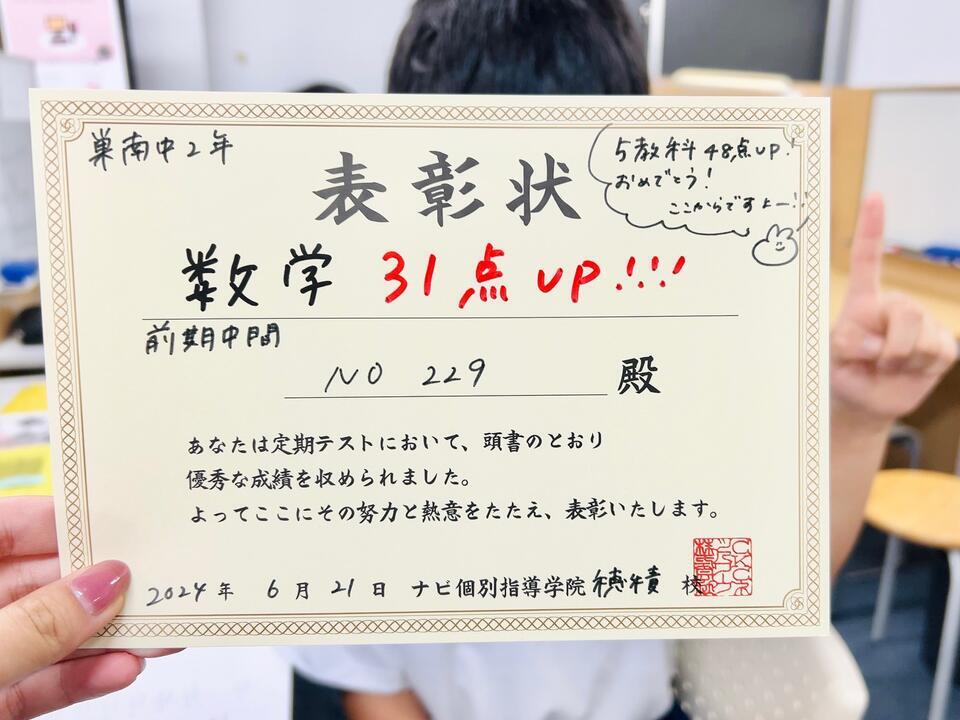 巣南中2年
表彰状
5教科48点UP!
おめでとう!
ここからですよー!!
数学 31点UP!!!
前期中間
NO 229 殿
あなたは定期テストにおいて、頭書のとおり
優秀な成績を収められました。
よってここにその努力と熱意をたたえ、表彰いたします。
2024年 6月21日 ナビ個別指導学院 穂積 校